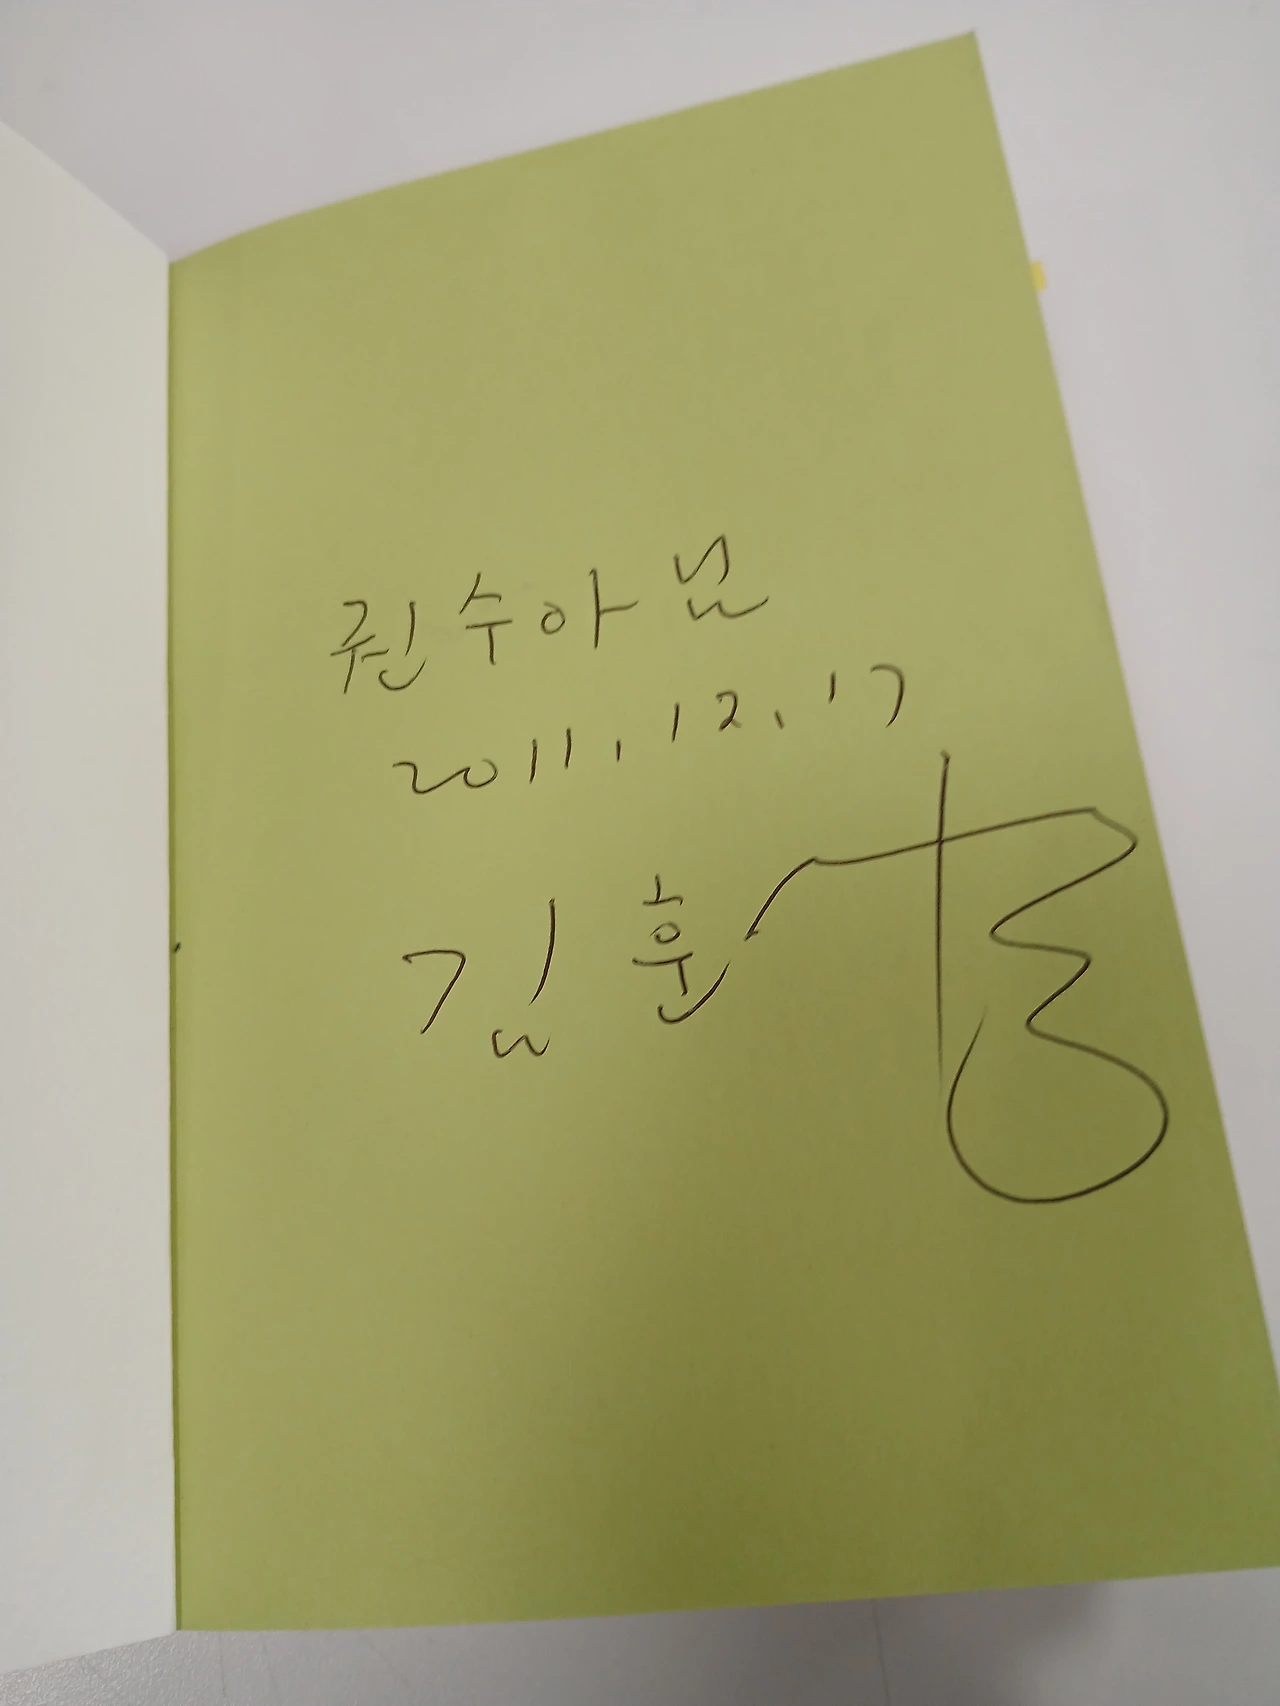 권수아님
2011. 12. 17
김훈